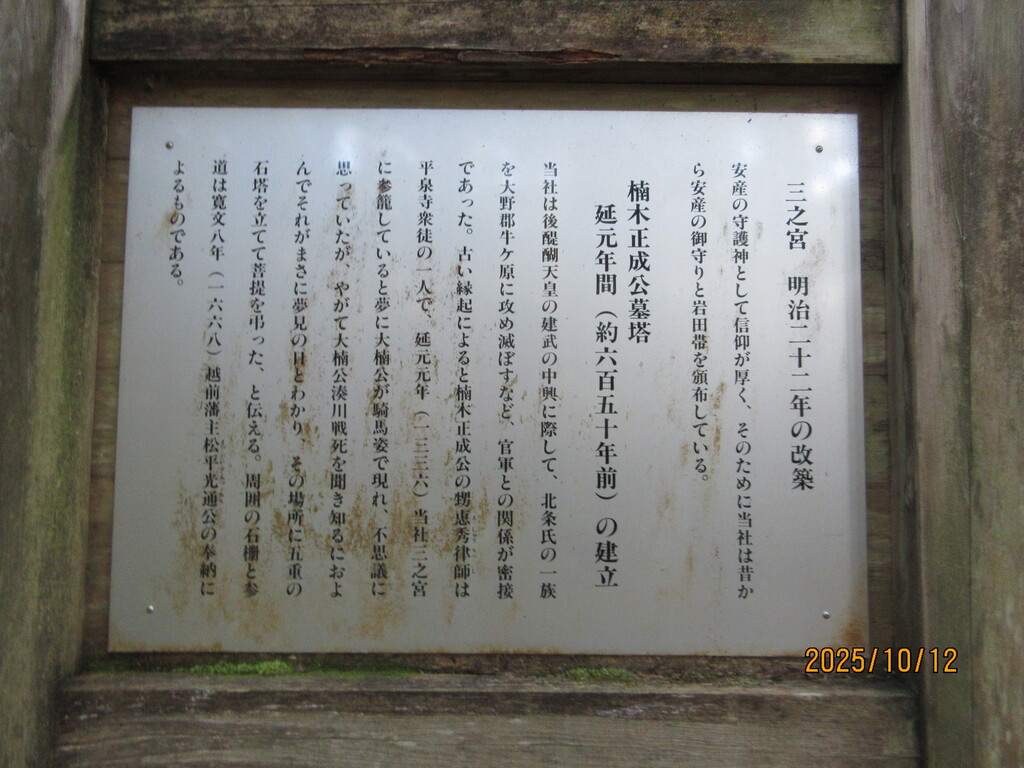 三之宮　明治二十二年の改築
安産の守護神として信仰が厚く、そのために当社は昔か
ら安産の御守りと岩田帯を頒布している。
楠木正成公墓塔
延元年間（約六百五十年前）の建立
当社は後醍醐天皇の建武の中興に際して、北条氏の一族
を大野郡牛ケ原に攻め滅ぼすなど、官軍との関係が密接
であった。古い縁起によると楠木正成公の甥恵秀律師は
平泉寺衆徒の一人で、延元元年（一三三六）当社三之宮
に参籠していると夢に大楠公が騎馬姿で現れ、不思議に
思っていたが、やがて大楠公湊川戦死を聞き知るにおよ
んでそれがまさに夢見の日とわかり、その場所に五重の
石塔を立てて菩提を弔った、と伝える。周囲の石柵と参
道は寛文八年（一六六八）越前藩主松平光通公の奉納に
よるものである。
2025/10/12